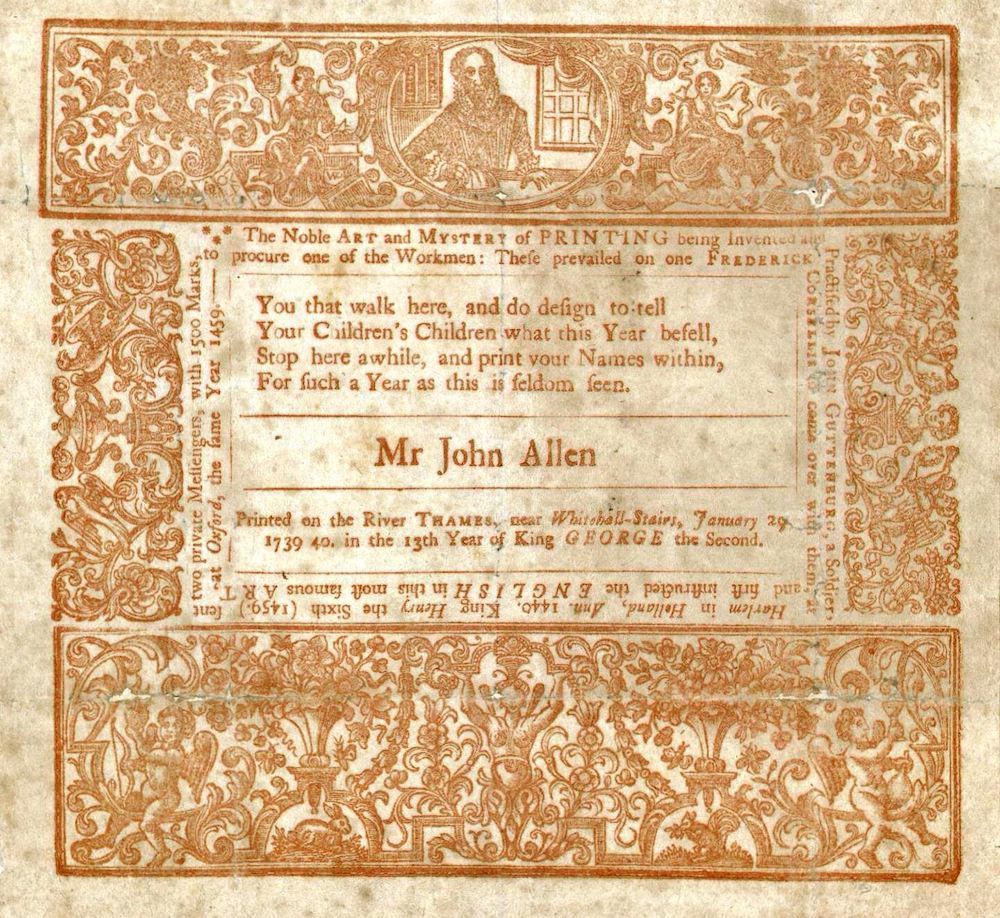 *** The Noble ART and MYSTERY of PRINTING being Invented and
Practiſed by JOHN GUTTENBURG, a Soldier, at
Harlem in Holland, Ann. 1440. King Henry the Sixth (1459.) ſent
two private Meſſengers with 1500 Marks, to
procure one of the Workmen: Theſe prevailed on one FREDERICK
CORSELLIS to come over with them,
and firſt inſtructed the ENGLISH in this moſt famous ART
at Oxford, the ſame Year 1459.
You that walk here, and do deſign to tell
Your Children's Children what this Year befell,
Stop here awhile, and print your Names within,
For ſuch a Year as this is ſeldom ſeen.
Mr John Allen
Printed on the River THAMES, near Whitehall-Stairs, January 29
1739 40. in the 13th Year of King GEORGE the Second.